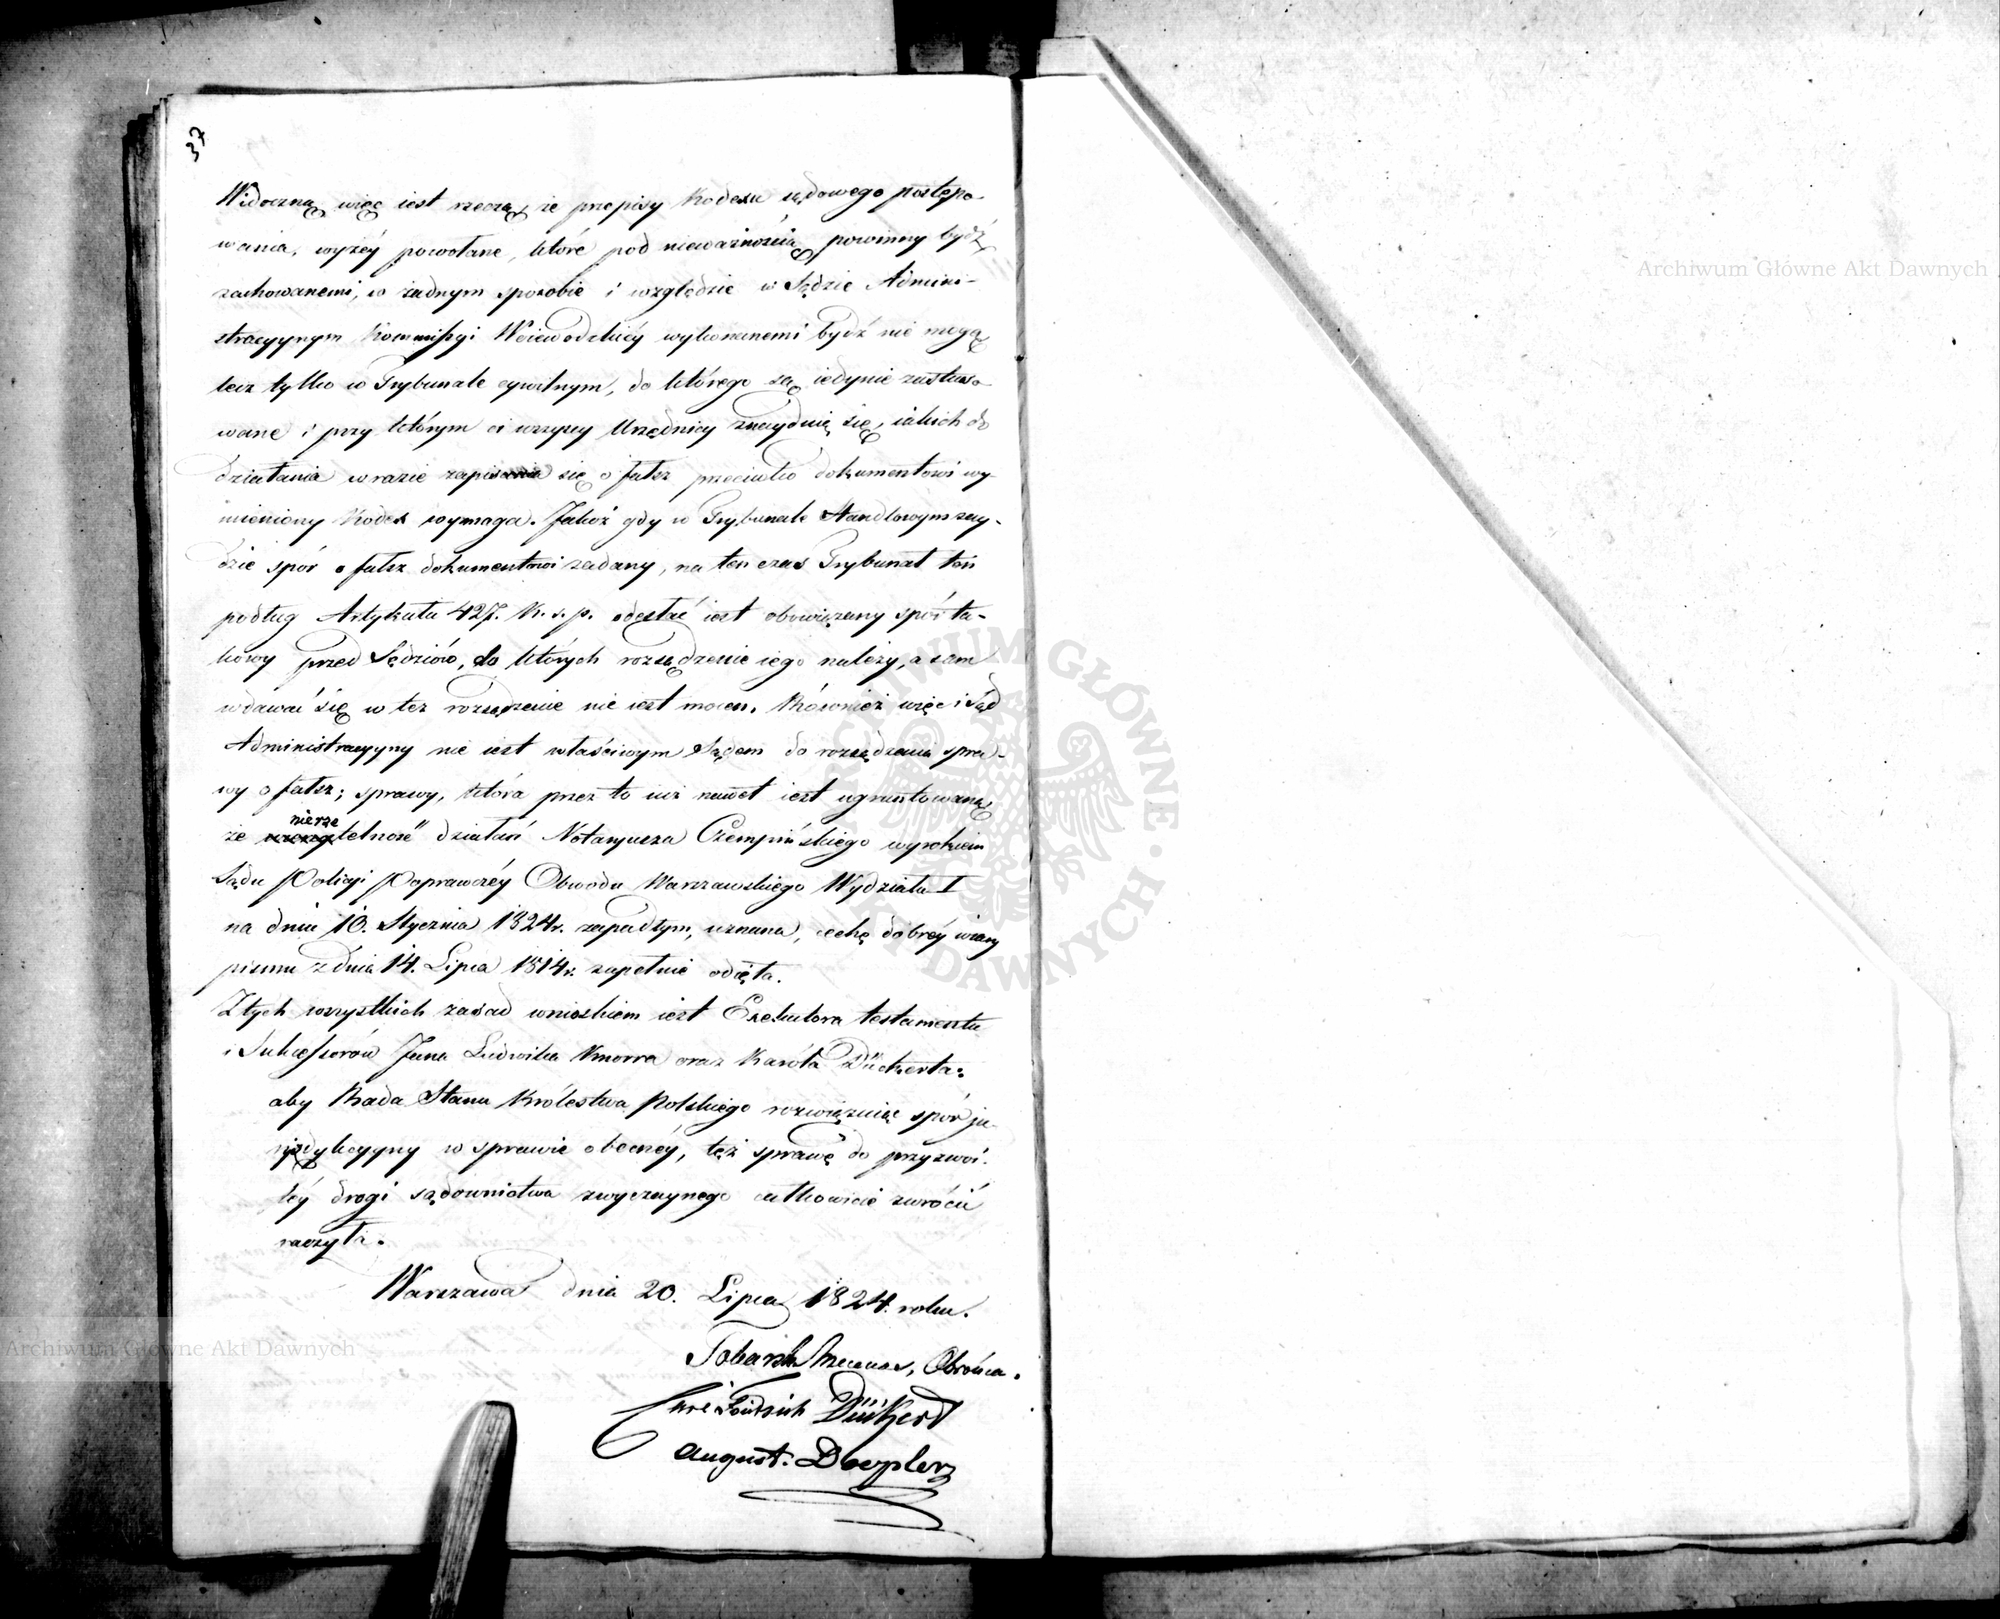 37
Widoczną więc iest rzeczą, że przepisy Kodexu sądowego postępo-
wania, wyżéy powołane, które pod nieważnością powinny bydź
zachowanemi, w żadnym sposobie i względzie w Sądzie Admini-
stracyynym Kommissyi Woiewodzkiéy wykonanemi bydź nie mogą
lecz tylko w Trybunale cywilnym, do którego są iedynie zastoso-
wane i przy którym ci wszyscy Urzędnicy znayduią się, iakich do
działania w razie zapisania się o fałsz przeciwko dokumentowi wy-
mieniony Kodex wymaga. Jakoż gdy w Trybunale Handlowym zay-
dzie spór o fałsz dokumentowi zadany, na ten czas Trybunał ten
podług Artykułu 427. K. s. p. odesłać iest obowiązany spór ta-
kowy przed Sędziów, do których rozsądzenie iego należy, a sam
wdawać się w też rozsądzenie nie iest mocen. Również więc i Sąd
Administracyyny nie iest właściwym Sądem do rozsądzenia spra-
wy o fałsz; sprawy, która przez to iuż nawet iest ugruntowaną
nierze
że telność działań Notaryusza Czempińskiego wyrokiem
Sądu Policyi Poprawczéy Obwodu Warszawskiego Wydziału I
na dniu 10. Stycznia 1824 r. zapadłym, uznana, cechę dobréy wiary
pismu z dnia 14. Lipca 1814 r. zupełnie odięła.
Z tych wszystkich zasad wnioskiem iest Exekutora testamentu
i Sukcessorów Jana Ludwika Knorra oraz Karóla Dückerta:
aby Rada Stanu Królestwa Polskiego rozwiązuiąc spór ju-
rysdykcyyny w sprawie obecnéy, też sprawę do przyzwoi-
téy drogi sądownictwa zwyczaynego całkowicie zwrócić
raczyła.
Warszawa dnia 20. Lipca 1824. roku.
Mecenas, Obrońca.
Dückert
August. Doepler
Archiwum Główne Akt Dawnych
Archiwum Główne Akt Dawnych
ARCHIWUM GŁÓWNE AKT DAWNYCH